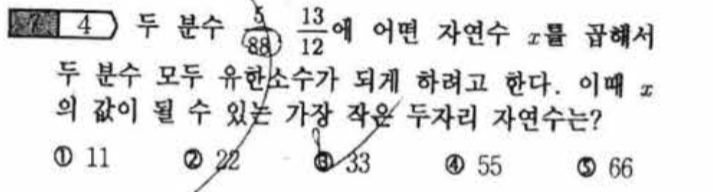 4 두 분수 5/88 13/12에 어떤 자연수 x를 곱해서
두 분수 모두 유한소수가 되게 하려고 한다. 이때 x
의 값이 될 수 있는 가장 작은 두자리 자연수는?
① 11 ② 22 ③ 33 ④ 55 ⑤ 66